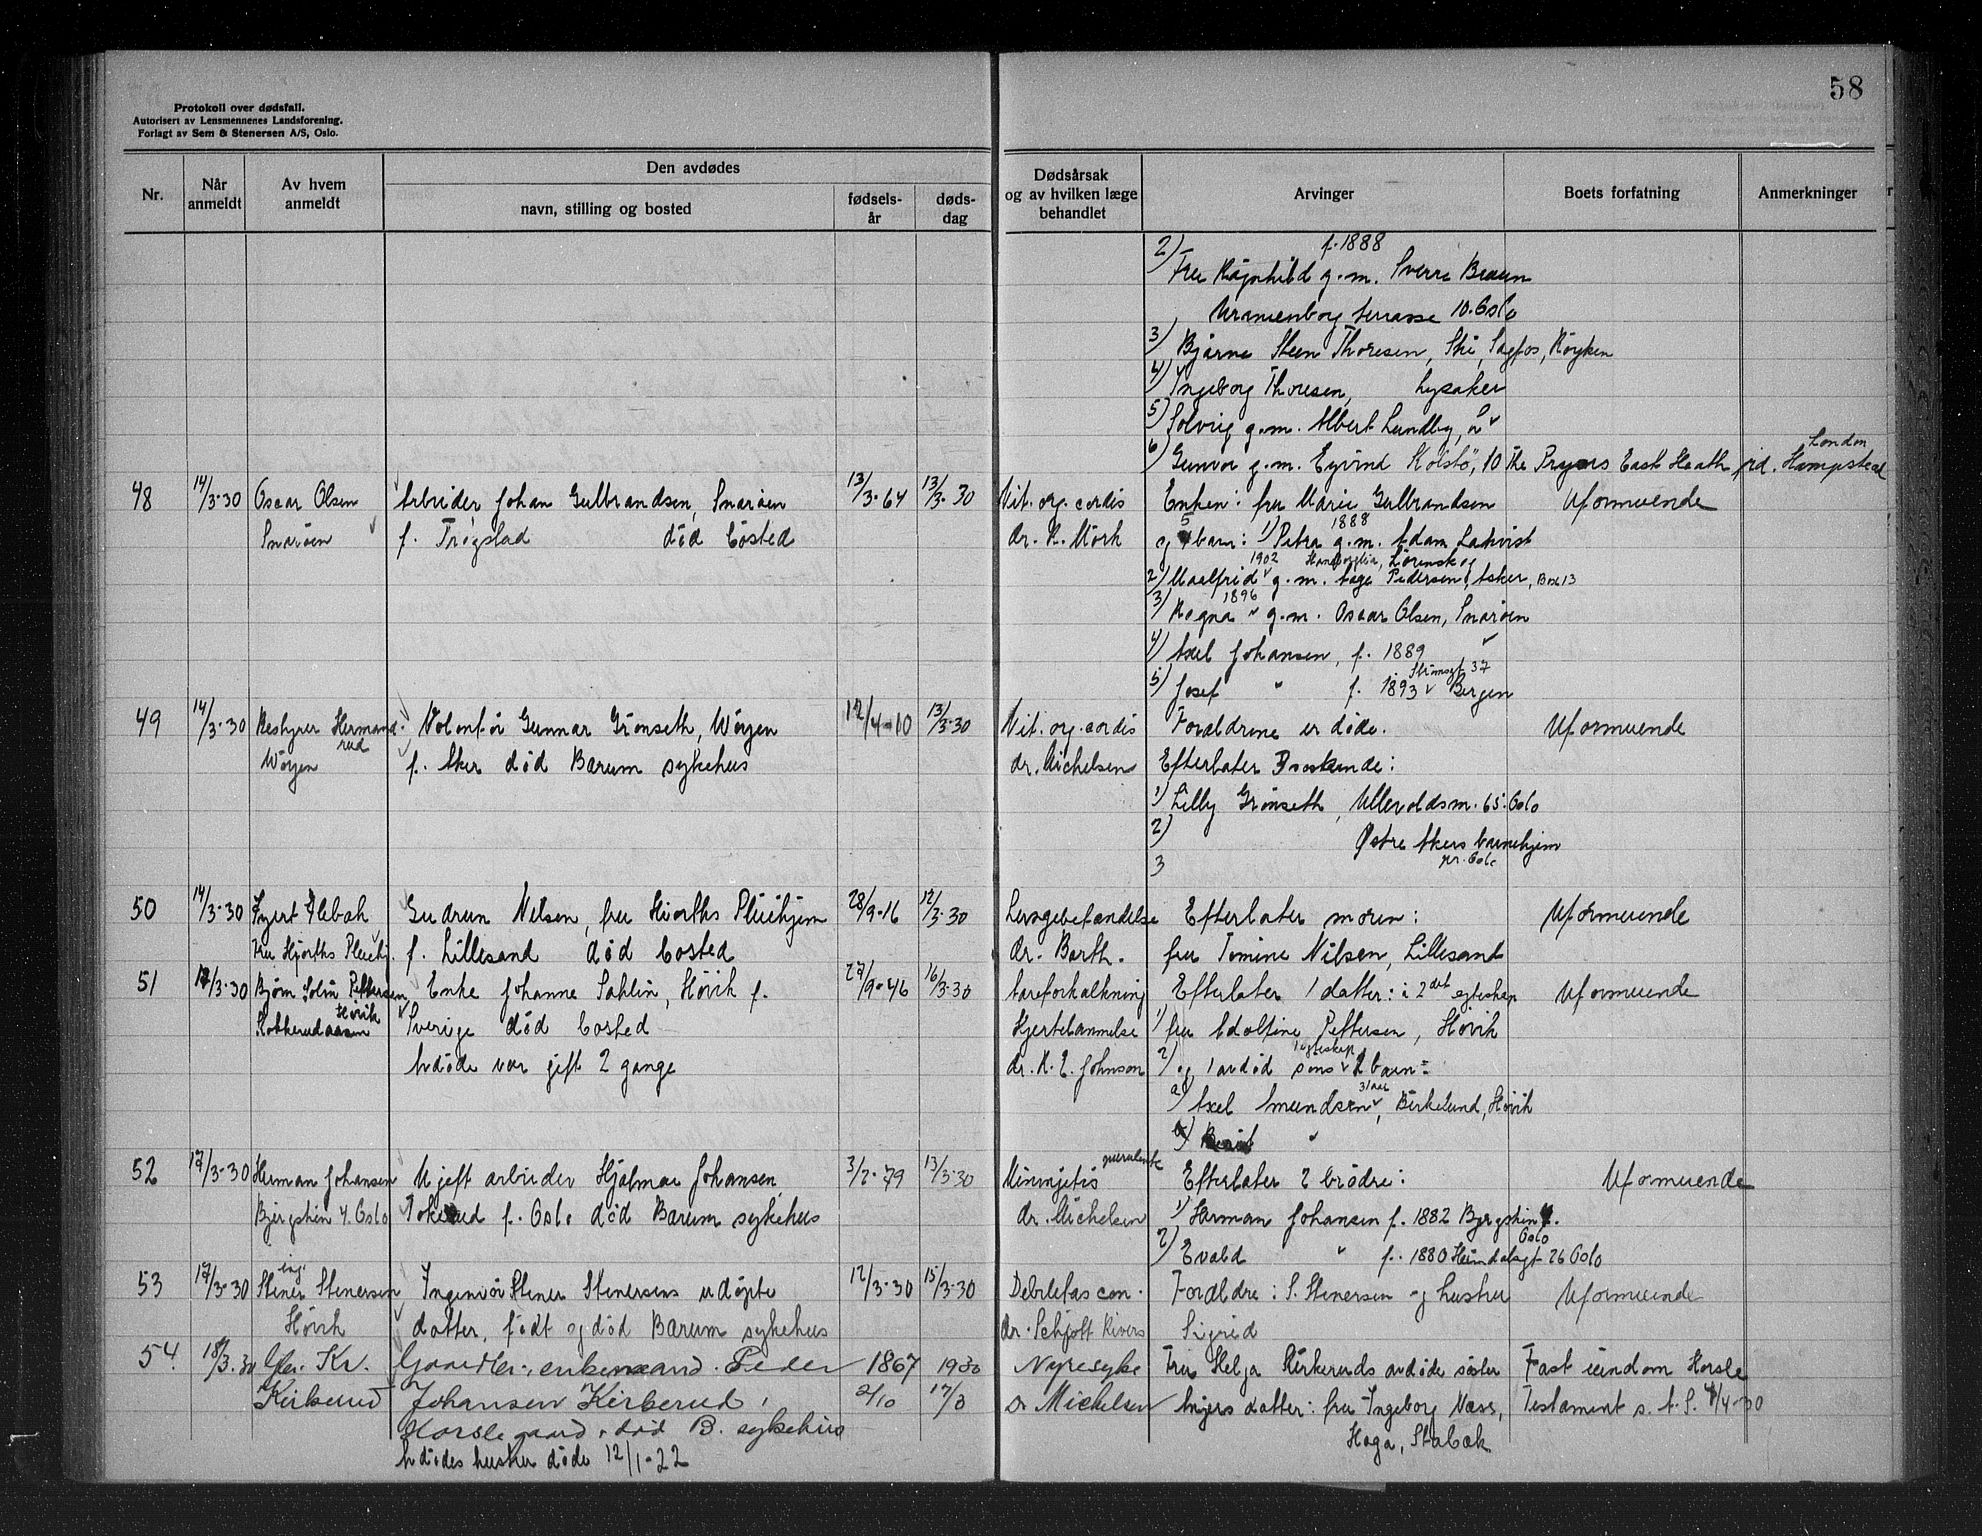 58
Protokoll over dødsfall.
Autorisert av Lensmennenes Landsforening.
Forlagt av Sem & Stenersen A/S, Oslo.
Nr.
Når anmeldt
Av hvem anmeldt
Den avdødes
navn, stilling og bosted
fødsels-år
døds-dag
Dødsårsak og av hvilken læge behandlet
Arvinger
Boets forfatning
Anmerkninger
f. 1888
2) Fru Ragnhild g.m. Sverre Braun
Uranienborg terrasse 10. Oslo
3) Bjarne Steen Thoresen, Ski, Sagfos, Røyken
4) Ingeborg Thoresen, Lysaker
5) Solveig g.m. Albert Lundby,
6) Gunvor g.m. Eyvind Kolstö, 10 The Pryors East Heath rd. Hampstead London
48 14/3-30 Oscar Olsen Arbeider Johan Gulbrandsen, Snarøen 13/3-64 13/3-30 Vit. org. cordis Enken: fru Marie Gulbrandsen Uformuende
Snarøen f. Trøgstad död bosted dr. R. Mörk og 5 barn: 1) Petra 1888 g.m. Adam
1902 Lörenskog
2) Maalfrid g.m. Aage Pedersen, Asker, Box 13
3) Ragna 1896 g.m. Oscar Olsen, Snarøen
4) Axel Johansen, f. 1889 "
5) Josef " f. 1893 Strömsgt 37 Bergen
49 14/3-30 Bestyrer Hermandrud Volontör Gunnar Grönseth, Wøyen 12/4-10 13/3-30 Vit. org. cordis Foreldrene er døde. Uformuende
Wøyen f. Aker död Bærum sykehus dr. Michelsen Efterlater 3 søskende:
1) Lilly Grönseth, Ullevoldsv. 65. Oslo
2) Østre Akers barnehjem
pr. Oslo
3
50 14/3-30 Gudrun Nilsen, fru Hiorths Pleiehjem 28/9-16 12/3-30 Lungebetændelse Efterlater moren: Uformuende
Fru Hjorths Pleiehj. f. Lillesand död bosted dr. Barth. fru Tomine Nilsen, Lillesand
51 17/3-30 Bjørn Solin Pettersen, Enke Johanne Sahlin, Hövik f. 27/9-46 16/3-30 Aareforkalkning Efterlater 1 datter: i 2det egteskap Uformuende
Hövik Sverige död bosted Hjertelammelse 1) fru Adolfine Pettersen, Hövik
Avdöde var gift 2 gange dr. K. E. Johnson 2) og 1 avdöd søns 1 egteskap 2 barn:
a) Axel Amundsen 31 aar, Birkelund, Hövik
b) "
52 17/3-30 Herman Johansen Ugift arbeider Hjalmar Johansen, 3/7-79 13/3-30 Meningitis purulenta Efterlater 2 brödre: Uformuende
Bjergstien 4. Oslo f. Oslo död Bærum sykehus dr. Michelsen 1) Herman Johansen f. 1882 Bjergstien 4. Oslo
2) Evald " f. 1880 Heimdalsgt 26 Oslo
53 17/3-30 ing. Stener Stenersen Ingeniör Stener Stenersens udöpte 12/3-30 15/3-30 Debilitas con. Foreldre: S. Stenersen og hustru Uformuende
Hövik datter, födt og död Bærum sykehus dr. Schjött Rivers Sigrid
54. 18/3.30 Kr. Gaardbr., enkemand Peder 1867 1930 Nyresyke Fru Helga Kirkeruds avdöde søster Fast eiendom Horsle
Kirkerud Johansen Kirkerud, 2/10 17/3 Dr Michelsen datter: fru Ingeborg Næss, Testament s. t. S. 4/4-30
Horsle gaard, död B. sykehus Haga, Stabæk
Avdödes hustru döde 12/1-22